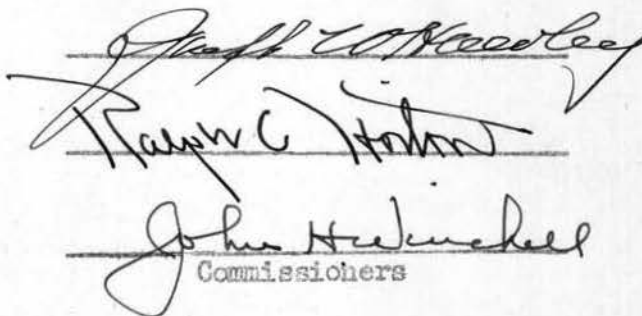 Joseph W. Hawley
Ralph C Horton
John H Winchell
Commissioners